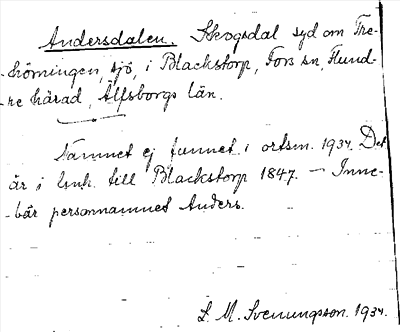 Andersdalen. Skogsdal syd om Tre-
-hörningen, sjö, i Blackstorp, Fors sn, Flund-
-re härad, Älfsborgs län.
Namnet ej funnet i ortsm. 1934. Det
är i lmh. till Blackstorp 1847. — Inne-
-bär personnamnet Anders.
S. M. Svenungson. 1934.